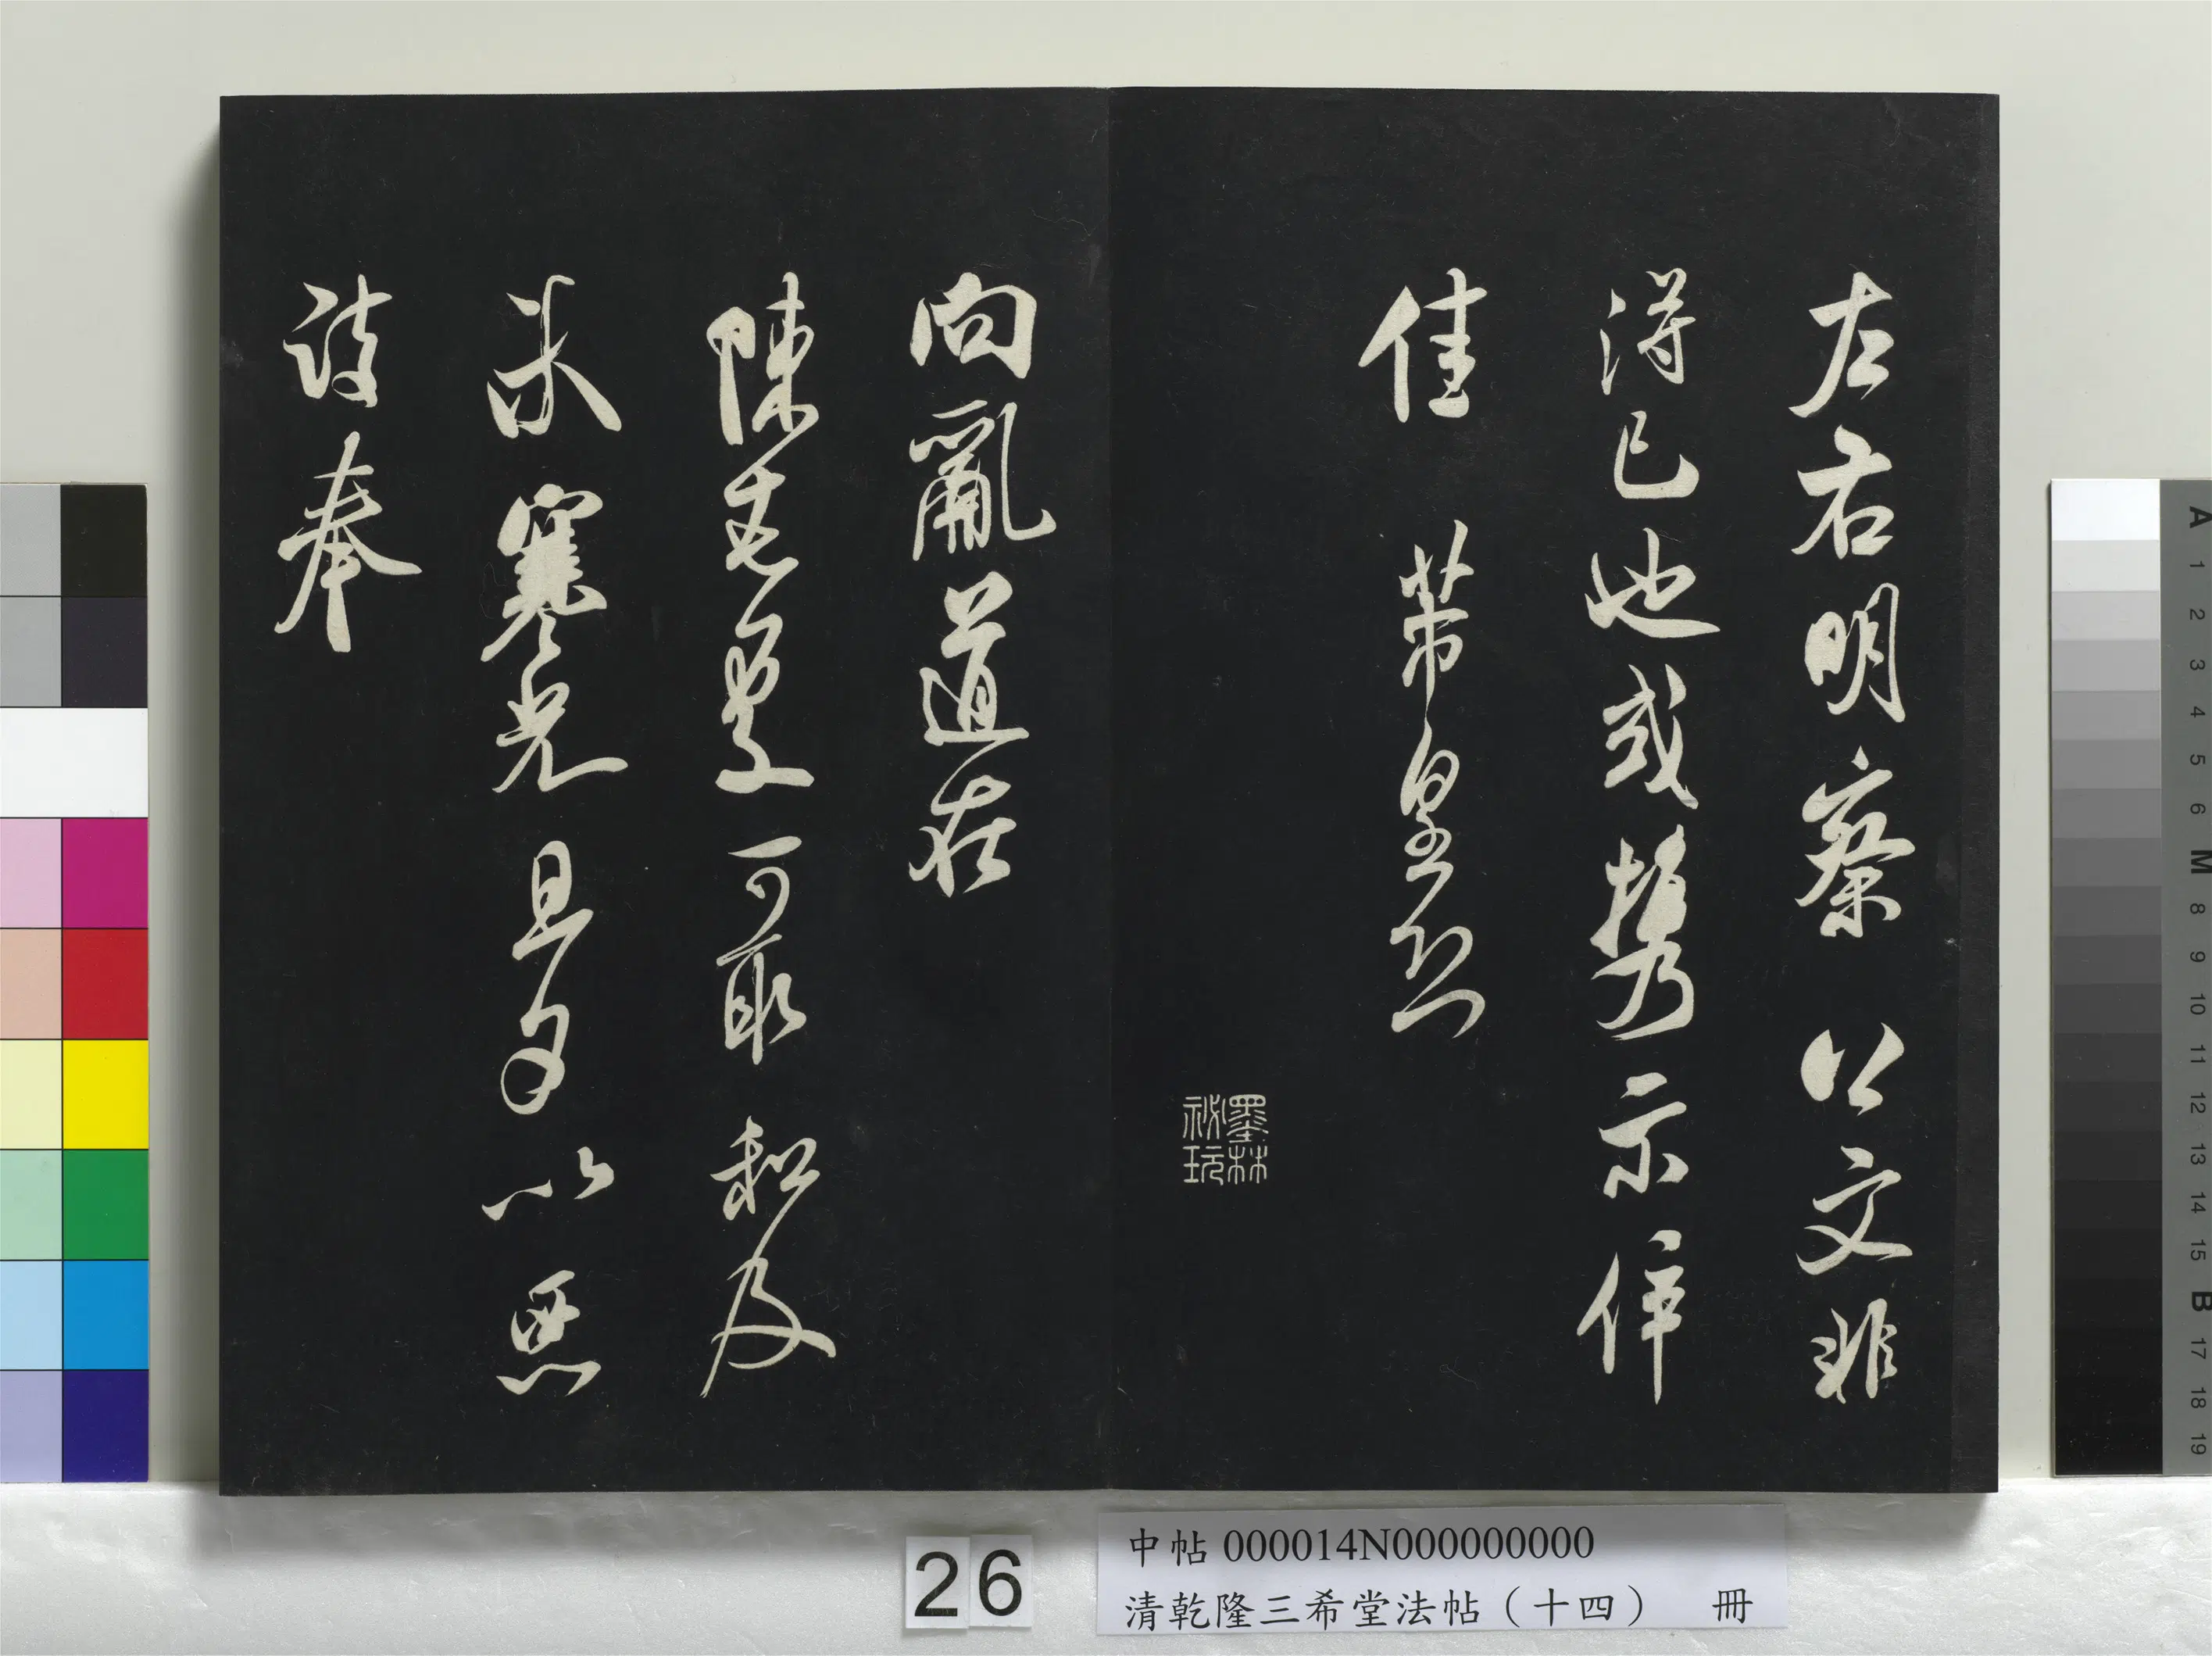 左右明察 公文非
得已也或攜示倅
佳 芾皇恐
墨林
祕玩
向亂道在
陳十七處可取 和及
寒光旦夕以惡
詩奉
26
中帖 000014N000000000
清乾隆三希堂法帖（十四） 冊
A 1 2 3 4 5 6 M 8 9 10 11 12 13 14 15 B 17 18 19